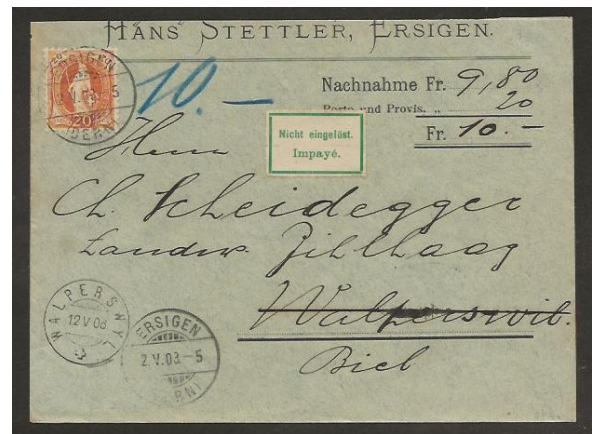 HANS STETTLER, ERSIGEN.
10.-
Nachnahme Fr. 9,80
Porto und Provis. „ 20
Fr. 10.-
Nicht eingelöst.
Impayé.
Herrn
Ch. Scheidegger
Landw. Zihlhaag
Walperswil.
Biel
ERSIGEN
(BERN)
20
WALPERSWYL
12 V 08
ERSIGEN
2.V.08-5
(BERN)